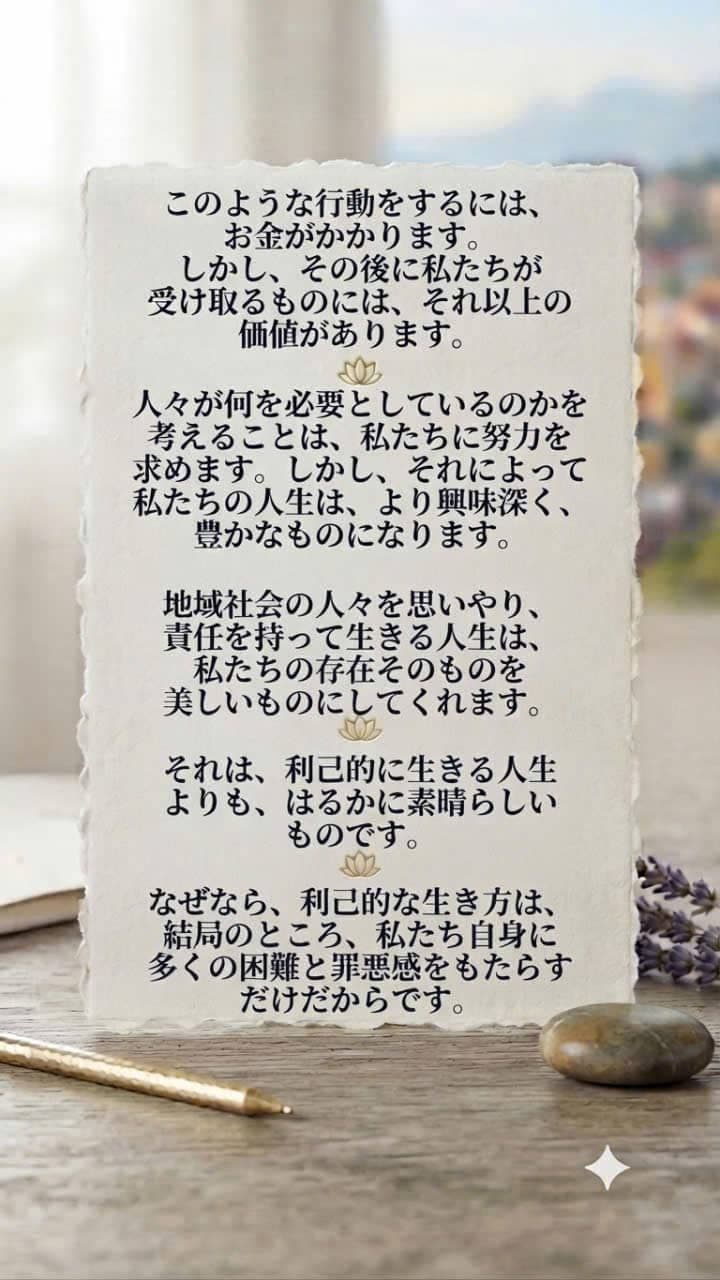 このような行動をするには、
お金がかかります。
しかし、その後に私たちが
受け取るものには、それ以上の
価値があります。
人々が何を必要としているのかを
考えることは、私たちに努力を
求めます。しかし、それによって
私たちの人生は、より興味深く、
豊かなものになります。
地域社会の人々を思いやり、
責任を持って生きる人生は、
私たちの存在そのものを
美しいものにしてくれます。
それは、利己的に生きる人生
よりも、はるかに素晴らしい
ものです。
なぜなら、利己的な生き方は、
結局のところ、私たち自身に
多くの困難と罪悪感をもたらす
だけだからです。